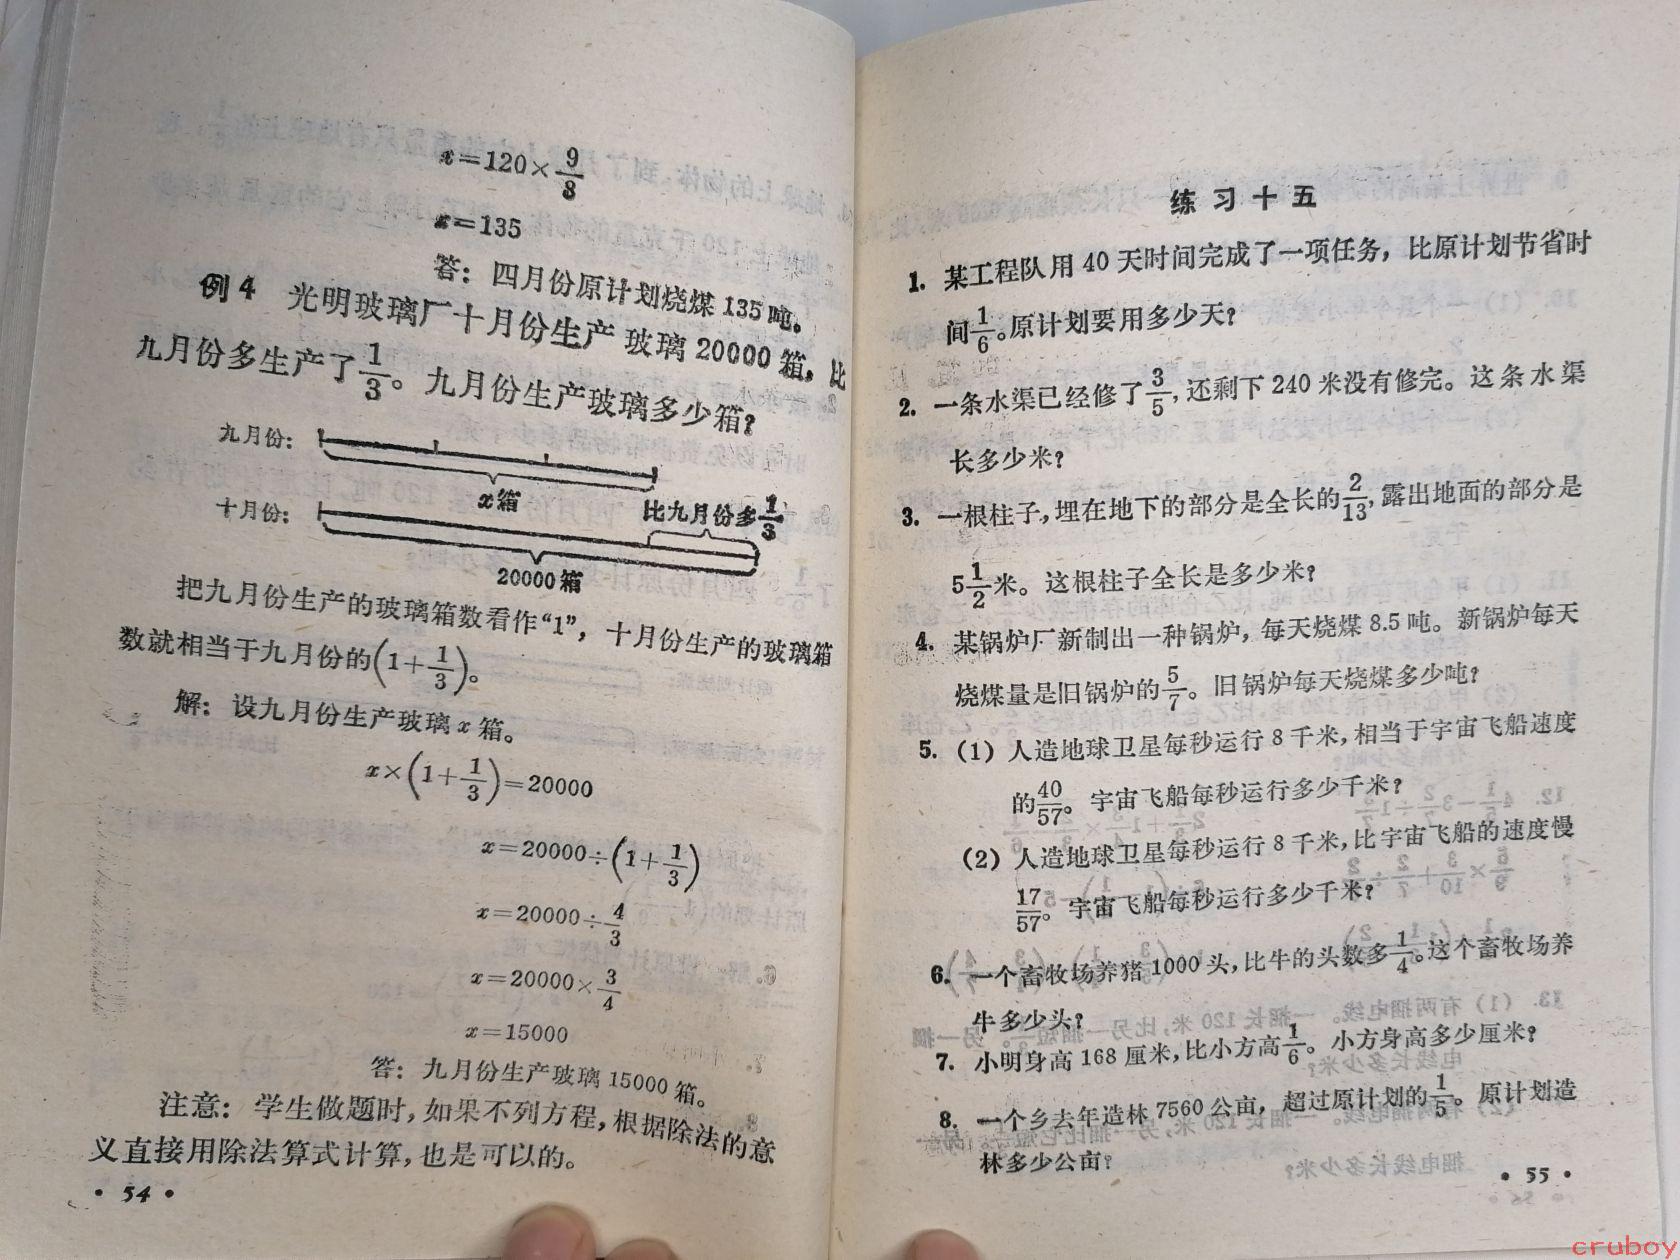 x=120×9/8
x=135
答：四月份原计划烧煤135吨。
例4 光明玻璃厂十月份生产玻璃20000箱，比
九月份多生产了1/3。九月份生产玻璃多少箱？
九月份：
x箱
十月份：
比九月份多1/3
20000箱
把九月份生产的玻璃箱数看作“1”，十月份生产的玻璃箱
数就相当于九月份的(1+1/3)。
解：设九月份生产玻璃x箱。
x×(1+1/3)=20000
x=20000÷(1+1/3)
x=20000÷4/3
x=20000×3/4
x=15000
答：九月份生产玻璃15000箱。
注意：学生做题时，如果不列方程，根据除法的意
义直接用除法算式计算，也是可以的。
• 54 •
练习十五
1. 某工程队用40天时间完成了一项任务，比原计划节省时
间1/6。原计划要用多少天？
2. 一条水渠已经修了3/5，还剩下240米没有修完。这条水渠
长多少米？
3. 一根柱子，埋在地下的部分是全长的2/13，露出地面的部分是
5 1/2米。这根柱子全长是多少米？
4. 某锅炉厂新制出一种锅炉，每天烧煤8.5吨。新锅炉每天
烧煤量是旧锅炉的5/7。旧锅炉每天烧煤多少吨？
5. (1) 人造地球卫星每秒运行8千米，相当于宇宙飞船速度
的40/57。宇宙飞船每秒运行多少千米？
(2) 人造地球卫星每秒运行8千米，比宇宙飞船的速度慢
17/57。宇宙飞船每秒运行多少千米？
6. 一个畜牧场养猪1000头，比牛的头数多1/4。这个畜牧场养
牛多少头？
7. 小明身高168厘米，比小方高1/6。小方身高多少厘米？
8. 一个乡去年造林7560公亩，超过原计划的1/5。原计划造
林多少公亩？
• 55 •
cruboy